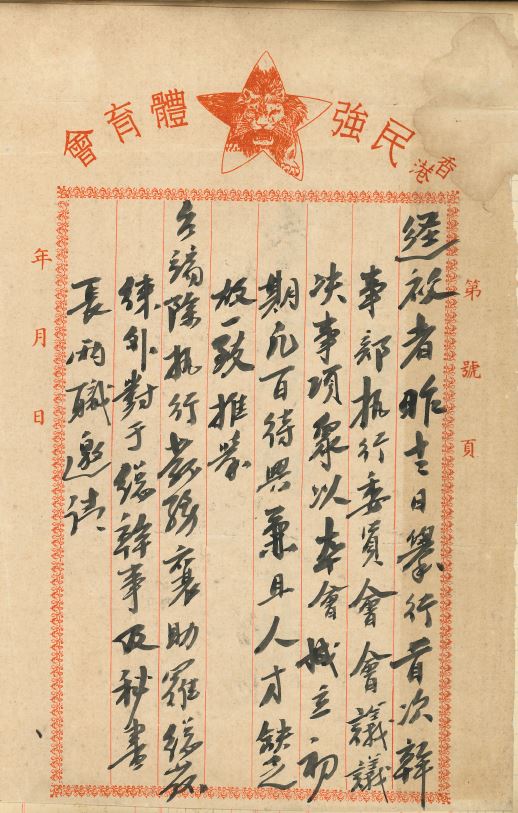 香港民強體育會
第 號 頁
逕啟者昨日舉行首次幹
事部執行委員會會議議
決事項衆以本會成立初
期凡百待興兼且人才缺乏
故一致推举
台端除執行教務襄助羅總教
練外對于總幹事及秘書
長兩職邀請
年 月 日